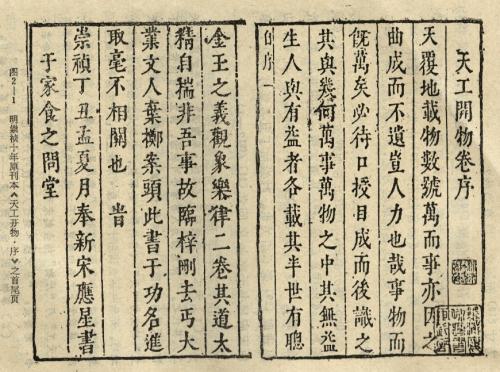 天工開物卷序
天覆地載物數號萬而事亦因之
曲成而不遺豈人力也哉事物而
旣萬矣必待口授目成而後識之
其與幾何萬事萬物之中其無益
生人與有益者各載其半世有聰
序一
金玉之義觀象樂律二卷其道太
精自揣非吾事故臨梓刪去丐大
業文人棄擲案頭此書于功名進
取毫不相關也 旹
崇禎丁丑孟夏月奉新宋應星書
于家食之問堂
图2-1 明崇祯十年原刊本《天工开物·序》之首尾页